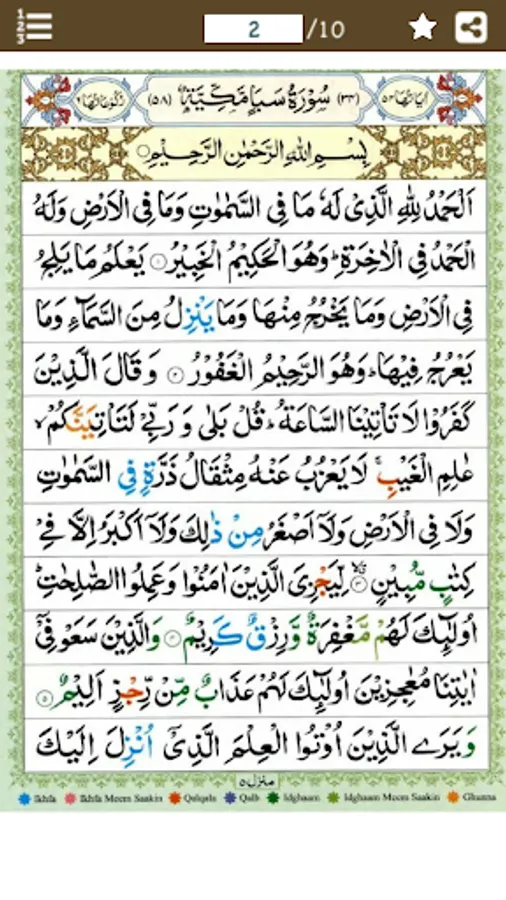 2 /10
اٰیَاتُهَا ٥٤ (٣٤) سُوْرَةُ سَبَاٍ مَّكِّیَّةٌ (٥٨) رُكُوْعَاتُهَا ٦
بِسْمِ اللّٰهِ الرَّحْمٰنِ الرَّحِیْمِ
اَلْحَمْدُ لِلّٰهِ الَّذِیْ لَهٗ مَا فِی السَّمٰوٰتِ وَمَا فِی الْاَرْضِ وَلَهُ
الْحَمْدُ فِی الْاٰخِرَةِ ؕ وَهُوَ الْحَكِیْمُ الْخَبِیْرُ ۝١ یَعْلَمُ مَا یَلِجُ
فِی الْاَرْضِ وَمَا یَخْرُجُ مِنْهَا وَمَا یَنْزِلُ مِنَ السَّمَآءِ وَمَا
یَعْرُجُ فِیْهَا ؕ وَهُوَ الرَّحِیْمُ الْغَفُوْرُ ۝٢ وَقَالَ الَّذِیْنَ
كَفَرُوْا لَا تَاْتِیْنَا السَّاعَةُ ؕ قُلْ بَلٰی وَرَبِّیْ لَتَاْتِیَنَّكُمْ ۙ
عٰلِمِ الْغَیْبِ ۚ لَا یَعْزُبُ عَنْهُ مِثْقَالُ ذَرَّةٍ فِی السَّمٰوٰتِ
وَلَا فِی الْاَرْضِ وَلَاۤ اَصْغَرُ مِنْ ذٰلِكَ وَلَاۤ اَكْبَرُ اِلَّا فِیْ
كِتٰبٍ مُّبِیْنٍ ۝٣ لِّیَجْزِیَ الَّذِیْنَ اٰمَنُوْا وَعَمِلُوا الصّٰلِحٰتِ ؕ
اُولٰٓىِٕكَ لَهُمْ مَّغْفِرَةٌ وَّرِزْقٌ كَرِیْمٌ ۝٤ وَالَّذِیْنَ سَعَوْ فِیْۤ
اٰیٰتِنَا مُعٰجِزِیْنَ اُولٰٓىِٕكَ لَهُمْ عَذَابٌ مِّنْ رِّجْزٍ اَلِیْمٌ ۝٥
وَیَرَی الَّذِیْنَ اُوْتُوا الْعِلْمَ الَّذِیْۤ اُنْزِلَ اِلَیْكَ
منزل ٥
Ikhfa Ikhfa Meem Saakin Qalqala Qalb Idghaam Idghaam Meem Saakin Ghunna